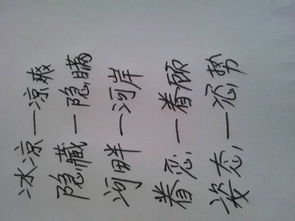 冰凉—凉爽
隐藏—隐瞒
河畔—河岸
眷恋—眷顾
姿态—姿势